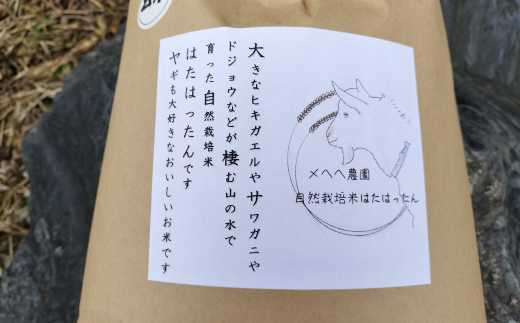 大きなヒキガエルやサワガニや
ドジョウなどが棲む山の水で
育った自然栽培米
はたはったんです
ヤギも大好きなおいしいお米です
メヘヘ農園
自然栽培米はたはったん